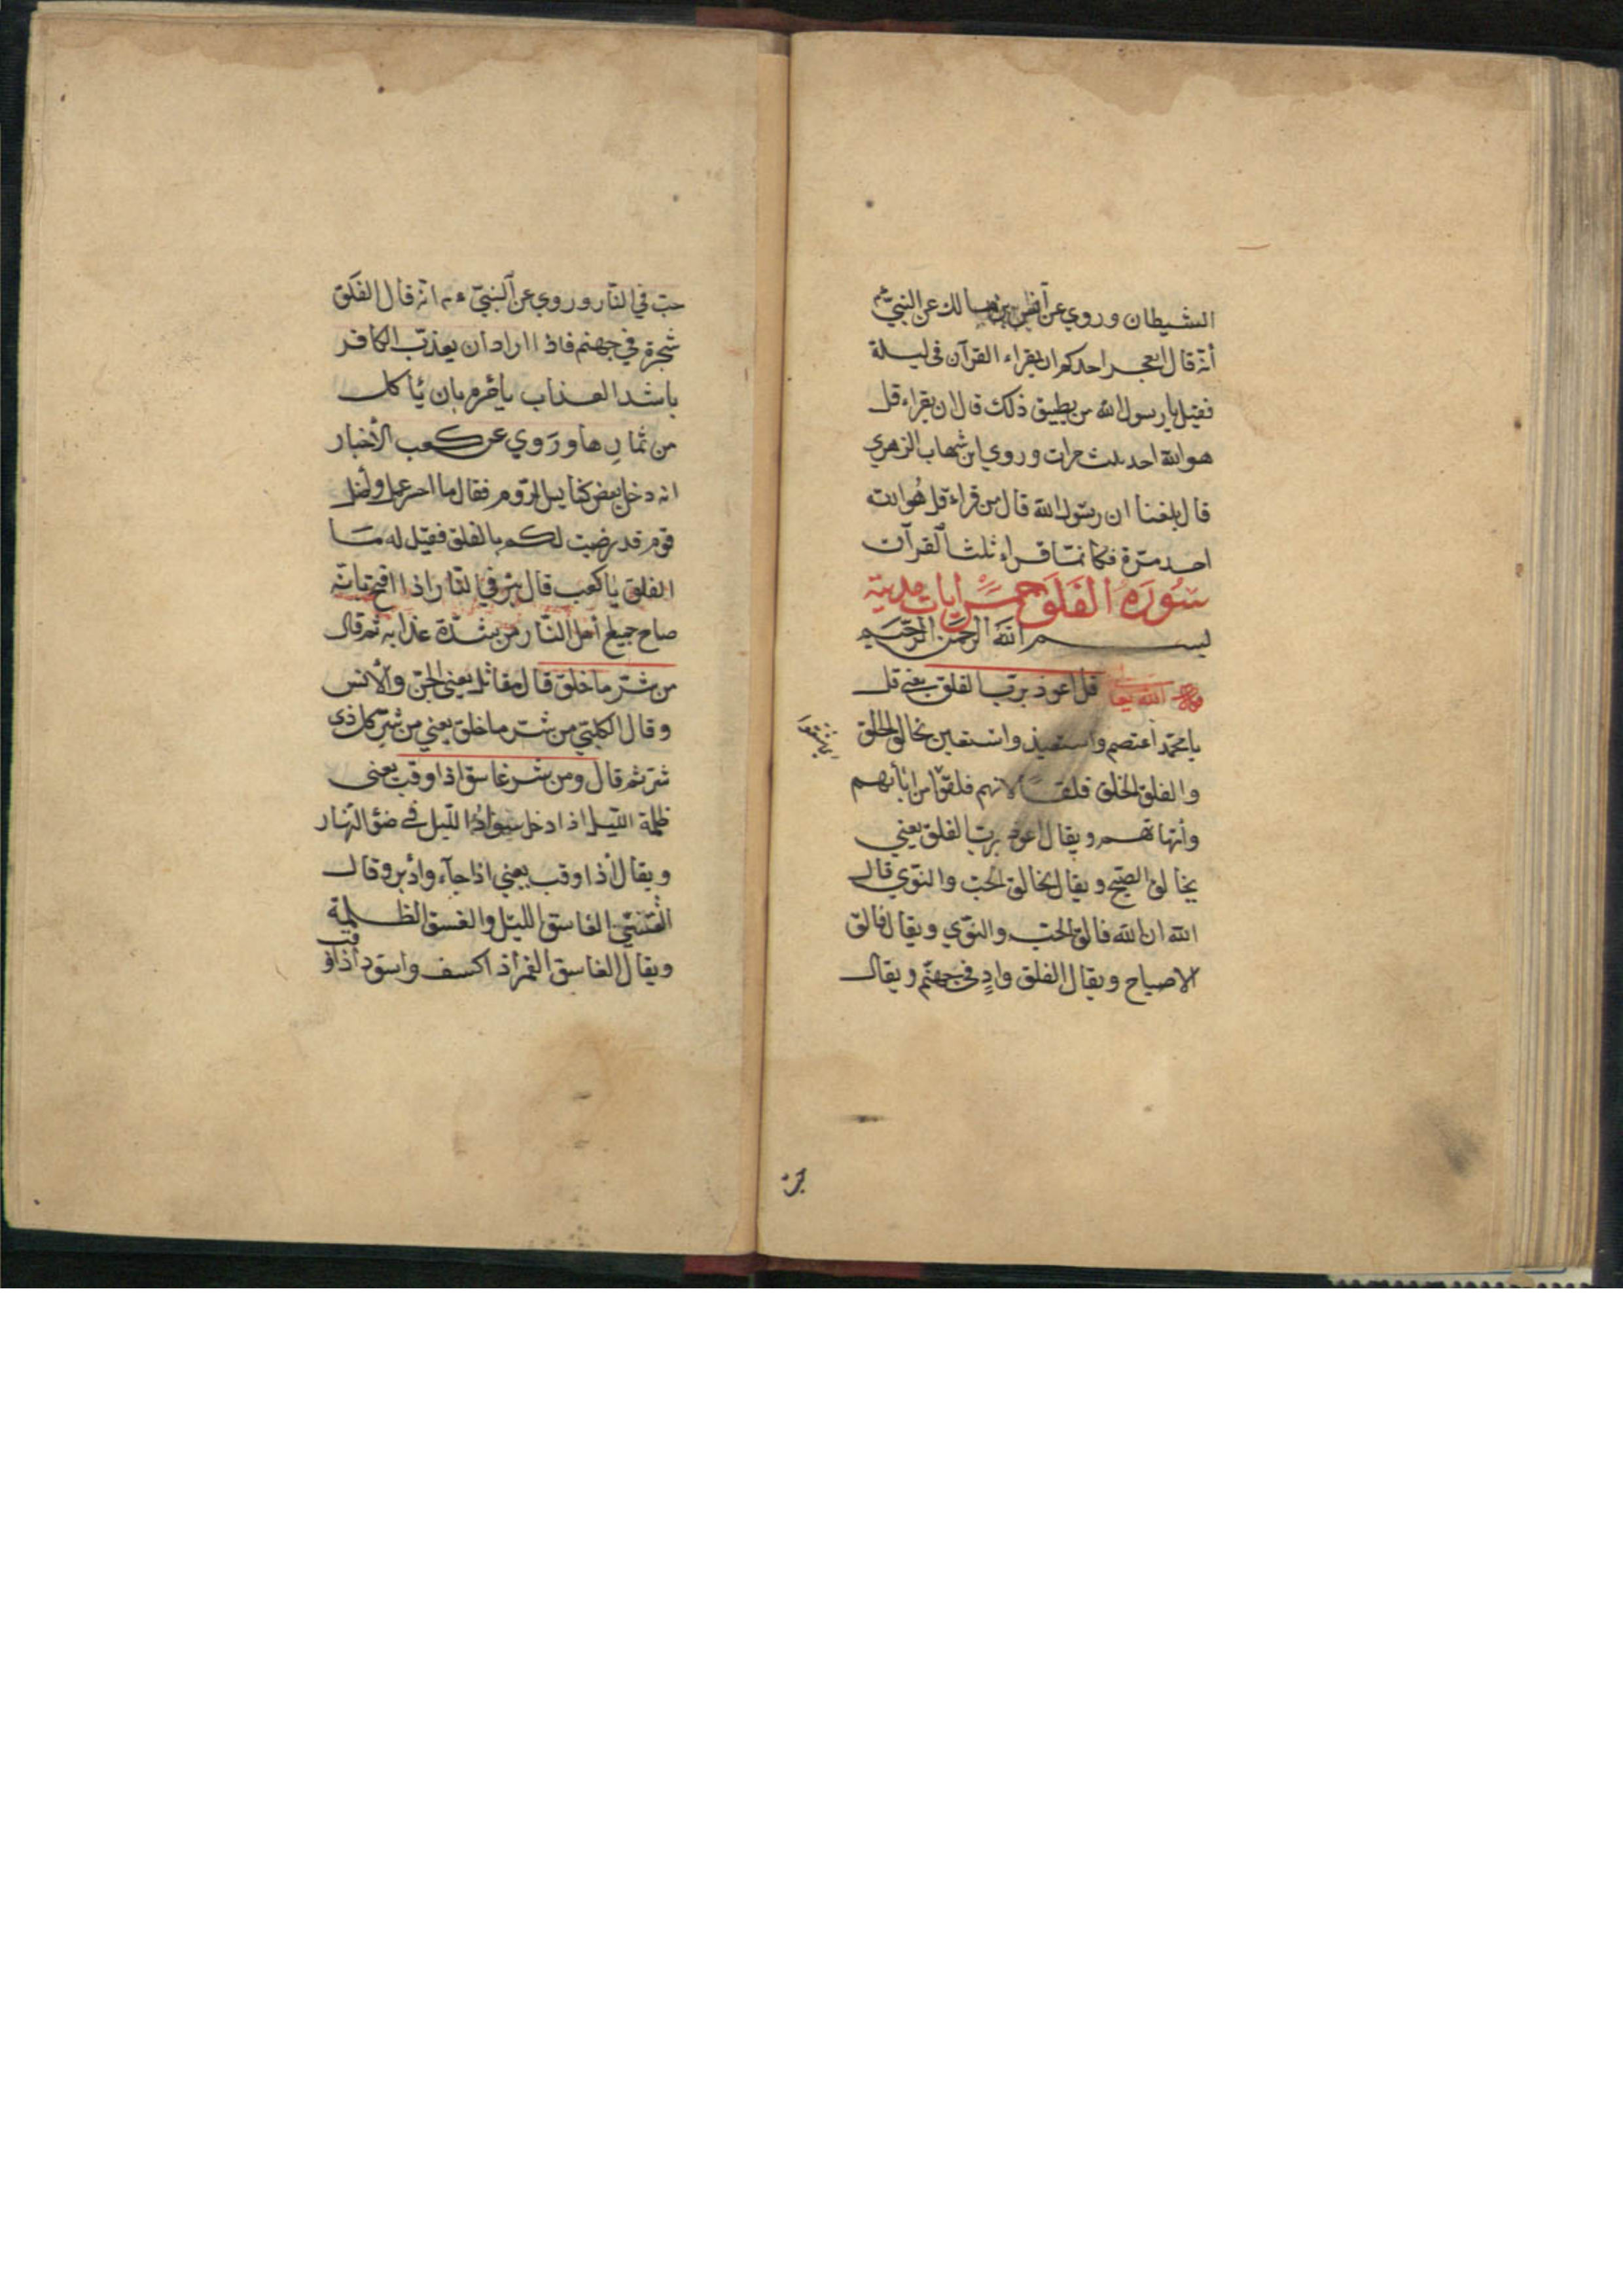 الشيطان وروي عن أنس بن مالك عن النبي عم
أنه قال ايعجر احدكم ان يقراء القرآن في ليلة
فقيل يا رسول الله من يطيق ذلك قال ان يقراء قل
هو الله احد ثلث مرات وروي ابن شهاب الزهري
قال بلغنا ان رسول الله قال من قراء قل هو الله
احد مرة فكانما قراء ثلث القرآن
سورة الفلق خمس ايات مدنية
بسم الله الرحمن الرحيم
الله تعا قل اعوذ برب الفلق يعني قل
يا محمد أعتصم واستعيذ واستعين بخالق الخلق
والفلق الخلق فلقا لانهم فلقوا من ابآبهم
وأمهاتهم ويقال اعوذ برب الفلق يعني
بخالق الصبح ويقال بخالق الحب والنوي قال
الله ان الله فالق الحب والنوي ويقال فالق
الاصباح ويقال الفلق وادٍ في جهنم ويقال
جب في النار وروي عن النبي عم انه قال الفلق
شجرة في جهنم فاذا اراد ان يعذب الكافر
باشد العذاب يأمرم بان يأكل
من ثمارها وروي عن كعب الأخبار
انه دخل بعض كنايس الروم فقال ما احسن عمل واضل
قوم قد رضيت لكم بالفلق فقيل له ما
الفلق يا كعب قال بئر في النار اذا افتح بابه
صاح جميع أهل النار من شدة عذابه ثم قال
من شر ما خلق قال مقاتل يعني الجن والأنس
وقال الكلبي من شر ما خلق يعني من شر كل ذي
شر ثم قال ومن شر غاسق اذا وقب يعني
ظلمة الليل اذا دخل سواد الليل في ضؤ النهار
ويقال أذا وقب يعني اذا جآء وأدبر وقال
القتبي الغاسق الليل والغسق الظلمة
ويقال الغاسق القمر أذ اكسف واسود أذا وقب